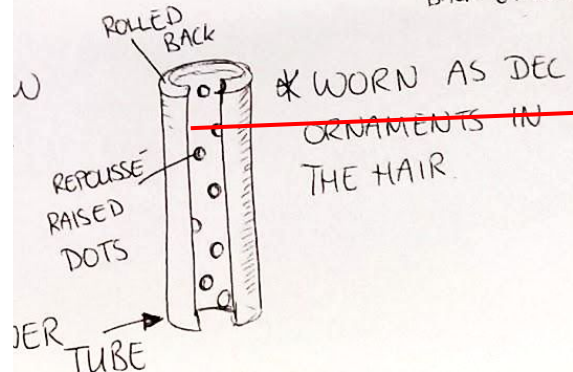 ROLLED
BACK
* WORN AS DEC
ORNAMENTS IN
THE HAIR.
REPOUSSÉ
RAISED
DOTS
TUBE